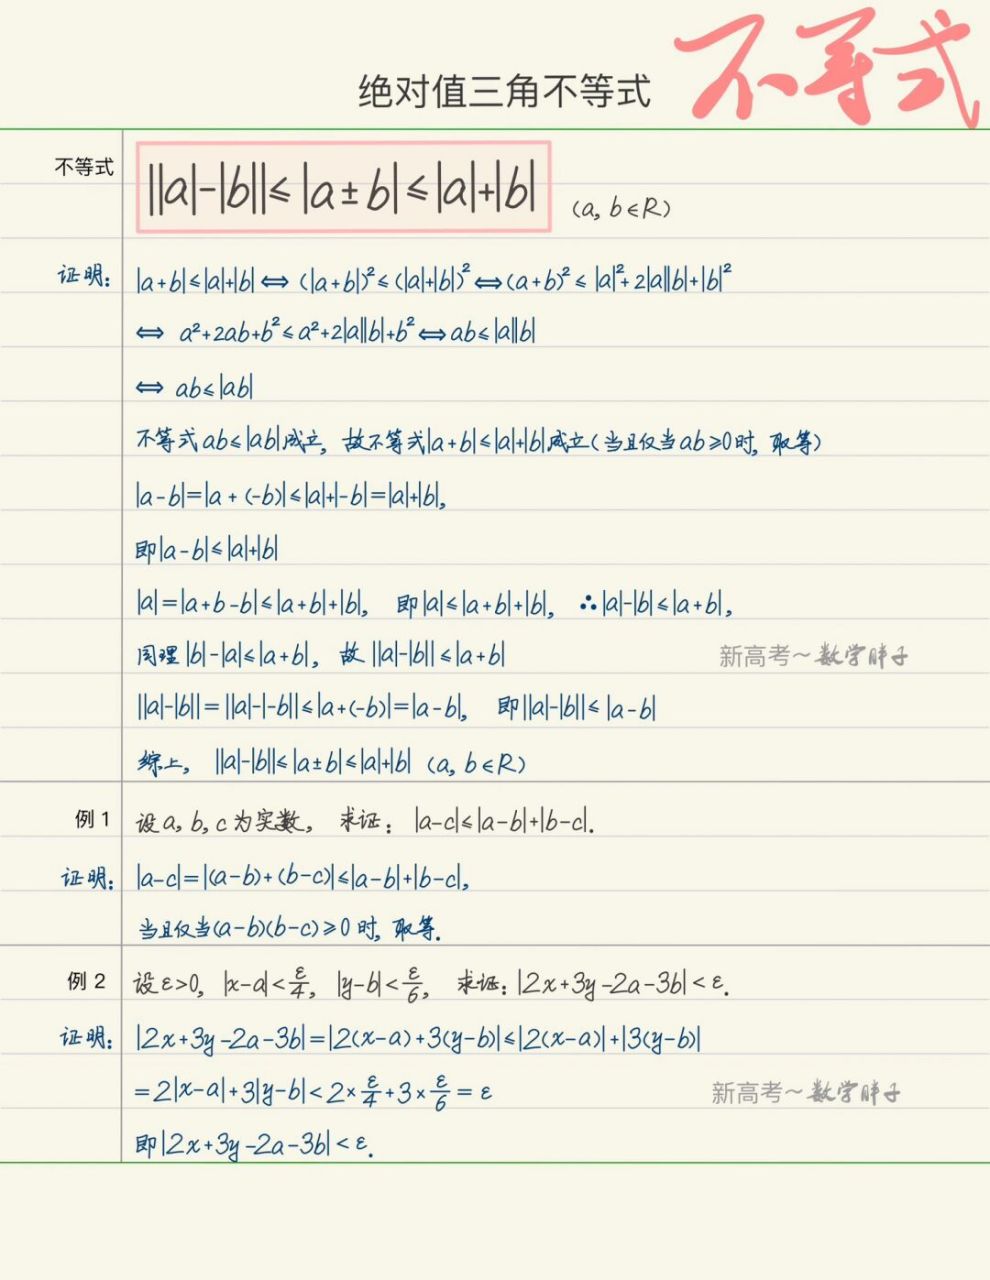 不等式
绝对值三角不等式
不等式 ||a|-|b||≤|a±b|≤|a|+|b| (a, b∈R)
证明: |a+b|≤|a|+|b| ⟺ (|a+b|)²≤(|a|+|b|)² ⟺ (a+b)²≤|a|²+2|a||b|+|b|²
⟺ a²+2ab+b²≤a²+2|a||b|+b² ⟺ ab≤|a||b|
⟺ ab≤|ab|
不等式ab≤|ab|成立, 故不等式|a+b|≤|a|+|b|成立(当且仅当ab≥0时, 取等)
|a-b|=|a+(-b)|≤|a|+|-b|=|a|+|b|,
即|a-b|≤|a|+|b|
|a|=|a+b-b|≤|a+b|+|b|, 即|a|≤|a+b|+|b|, ∴|a|-|b|≤|a+b|,
同理|b|-|a|≤|a+b|, 故||a|-|b||≤|a+b|
新高考～数学胖子
||a|-|b||=||a|-|-b||≤|a+(-b)|=|a-b|, 即||a|-|b||≤|a-b|
综上, ||a|-|b||≤|a±b|≤|a|+|b| (a, b∈R)
例1 设a, b, c为实数, 求证: |a-c|≤|a-b|+|b-c|.
证明: |a-c|=|(a-b)+(b-c)|≤|a-b|+|b-c|,
当且仅当(a-b)(b-c)≥0时, 取等.
例2 设ε>0, |x-a|<ε/4, |y-b|<ε/6, 求证: |2x+3y-2a-3b|<ε.
证明: |2x+3y-2a-3b|=|2(x-a)+3(y-b)|≤|2(x-a)|+|3(y-b)|
=2|x-a|+3|y-b|<2×ε/4+3×ε/6=ε
新高考～数学胖子
即|2x+3y-2a-3b|<ε.